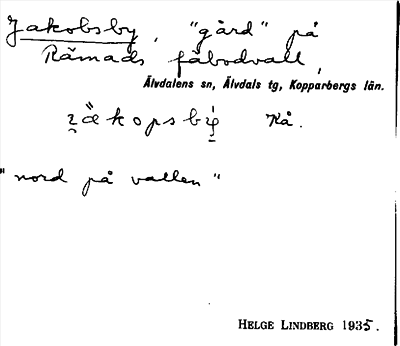 Jakobsby, "gård" på
Råmads fäbodvall,
Älvdalens sn, Älvdals tg, Kopparbergs län.
Rå.
"nord på vallen"
HELGE LINDBERG 1935.